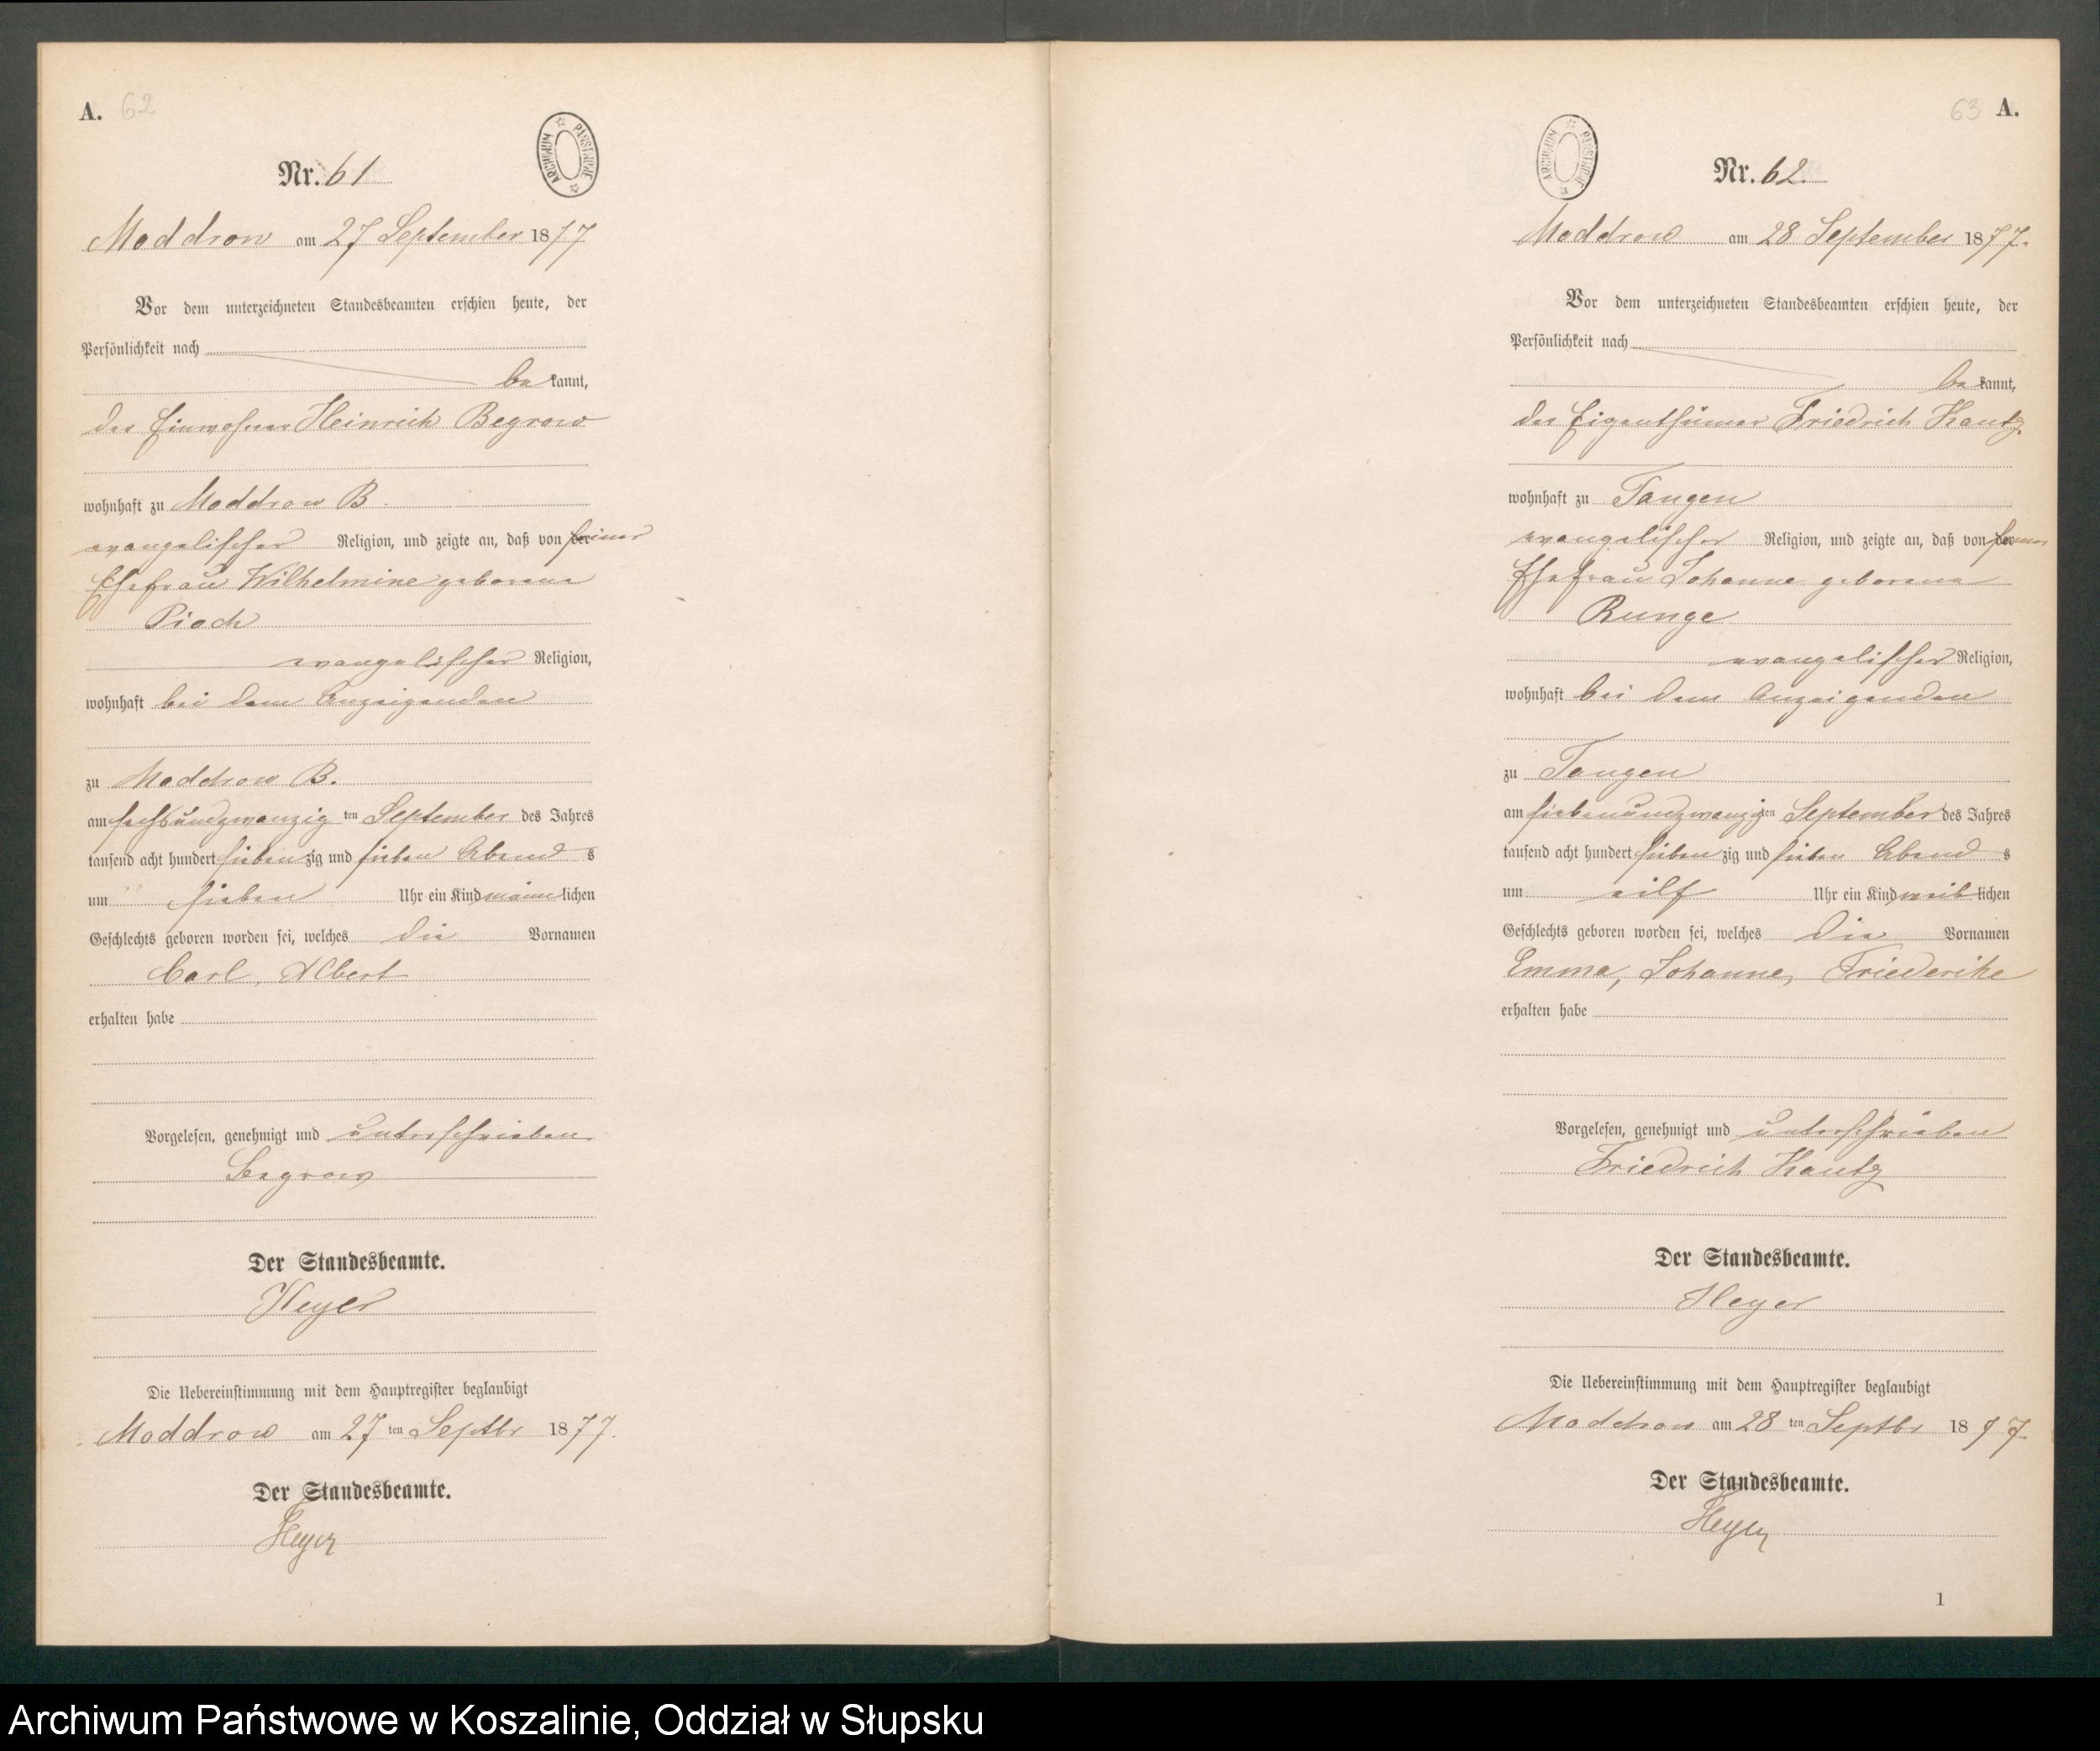 A. 62
ARCHIWUM PAŃSTWOWE
Nr. 61
Moddrow am 27 September 1877
Vor dem unterzeichneten Standesbeamten erschien heute, der
Persönlichkeit nach
be kannt,
der Einwohner Heinrich Begrow
wohnhaft zu Moddrow B.
evangelischer Religion, und zeigte an, daß von der seiner
Ehefrau Wilhelmine geborene
Pioch
evangelischer Religion,
wohnhaft bei dem Anzeigenden
zu Moddrow B.
am sechsundzwanzig ten September des Jahres
tausend acht hundert siebenzig und sieben Abend s
um sieben Uhr ein Kind männlichen
Geschlechts geboren worden sei, welches die Vornamen
Carl, Albert
erhalten habe
Vorgelesen, genehmigt und unterschrieben
Begrow
Der Standesbeamte.
Heyer
Die Uebereinstimmung mit dem Hauptregister beglaubigt
Moddrow am 27 ten Septbr 1877.
Der Standesbeamte.
Heyer
63 A.
ARCHIWUM PAŃSTWOWE
Nr. 62.
Moddrow am 28 September 1877.
Vor dem unterzeichneten Standesbeamten erschien heute, der
Persönlichkeit nach
be kannt,
der Eigenthümer Friedrich Kautz
wohnhaft zu Tangen
evangelischer Religion, und zeigte an, daß von der seiner
Ehefrau Johanne geborene
Runge
evangelischer Religion,
wohnhaft bei dem Anzeigenden
zu Tangen
am siebenundzwanzigten September des Jahres
tausend acht hundert siebenzig und sieben Abend s
um eilf Uhr ein Kind weiblichen
Geschlechts geboren worden sei, welches die Vornamen
Emma, Johanne, Friederike
erhalten habe
Vorgelesen, genehmigt und unterschrieben
Friedrich Kautz
Der Standesbeamte.
Heyer
Die Uebereinstimmung mit dem Hauptregister beglaubigt
Moddrow am 28 ten Septbr 1877.
Der Standesbeamte.
Heyer
1
Archiwum Państwowe w Koszalinie, Oddział w Słupsku